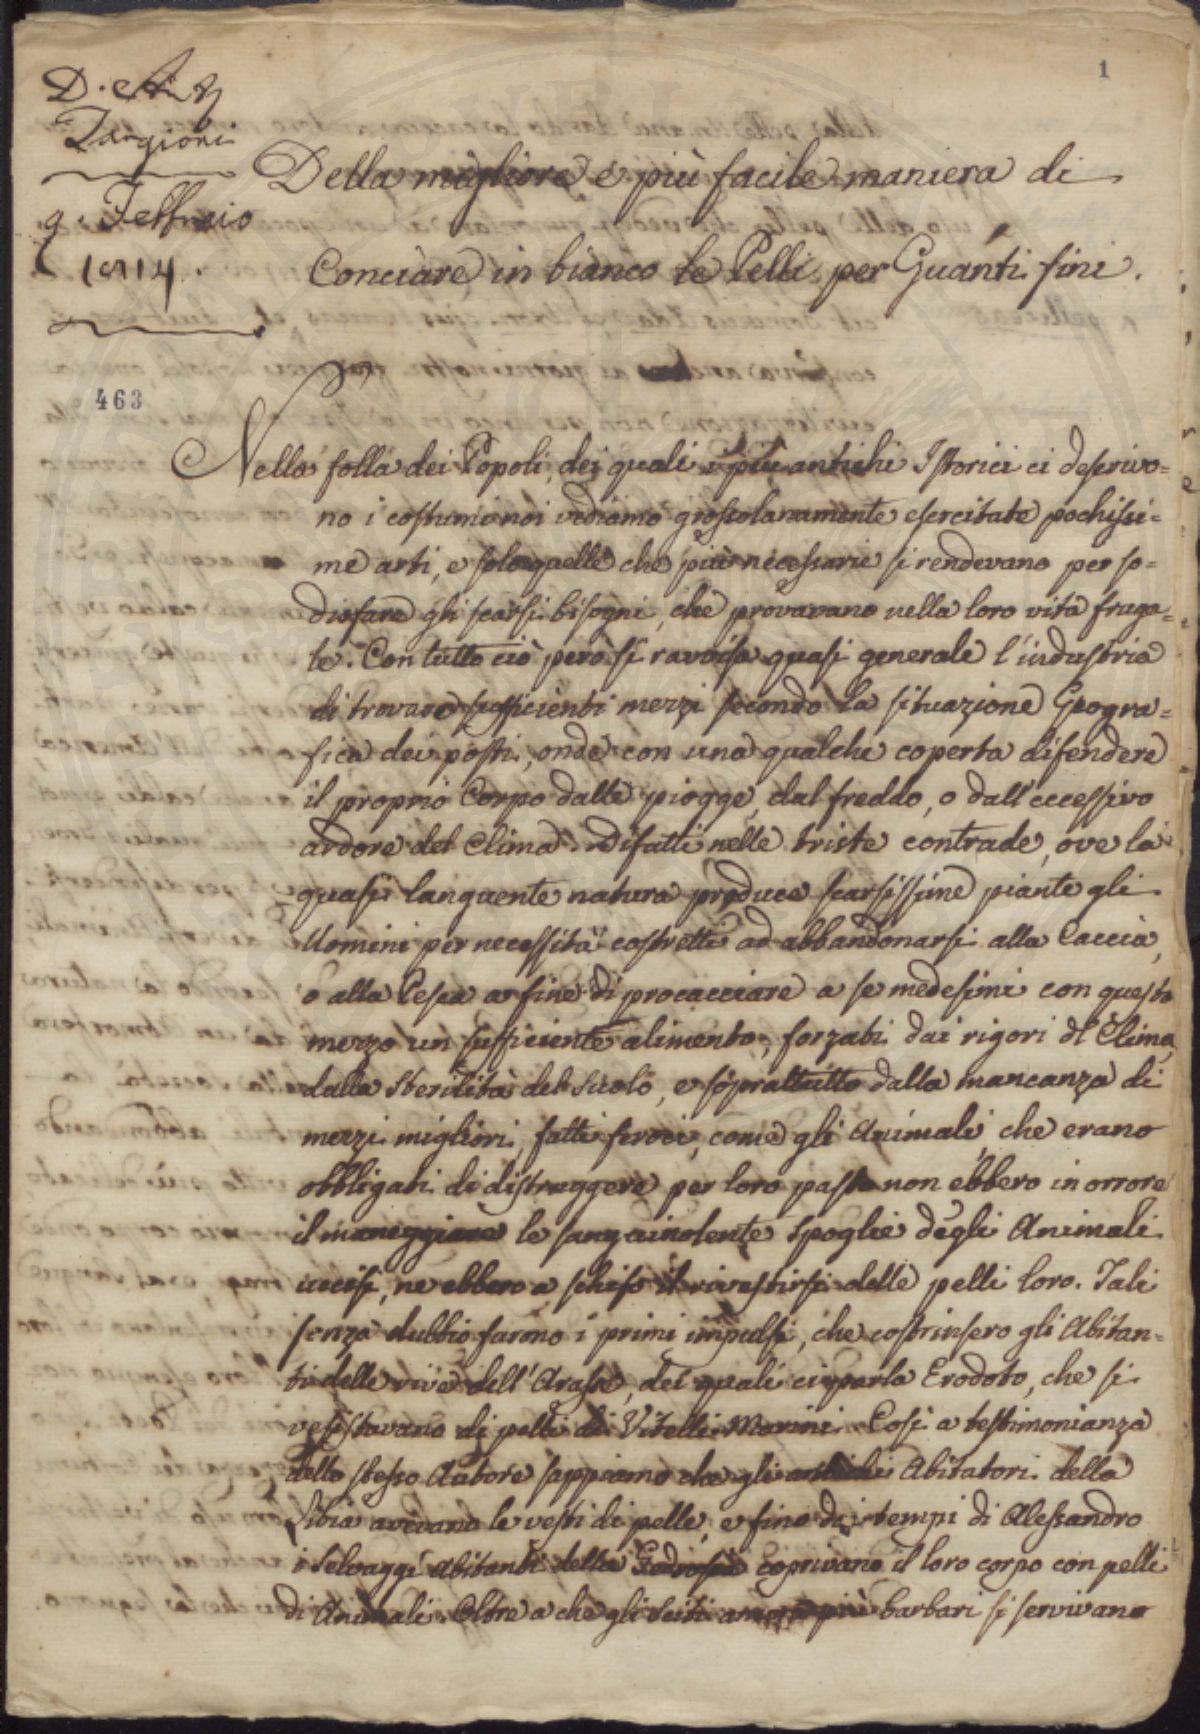 1
D. 
Targioni
9. Febbraio
1814.
463
Della migliore e più facile maniera di
Conciare in bianco le Pelli per Guanti fini.
Nella folla dei Popoli, dei quali i più antichi Istorici ci descrivo=
no i costumi noi vediamo grossolanamente esercitate pochissi=
me arti, e solo quelle che più necessarie si rendevano per so=
disfare gli scarsi bisogni, che provavano nella loro vita fruga=
le. Con tutto ciò però si ravvisa quasi generale l'industria
di trovare sufficienti mezzi secondo la situazione Geogra=
fica dei posti, onde con una qualche coperta difendere
il proprio Corpo dalle piogge, dal freddo, o dall'eccessivo
ardore del Clima. Difatti nelle triste contrade, ove la
quasi languente natura produce scarsissime piante gli
Uomini per necessità costretti ad abbandonarsi alla Caccia,
o alla Pesca a fine di procacciare a se medesimi con questo
mezzo un sufficiente alimento, forzati dai rigori dl Clima,
dalla sterilità del Suolo, e soprattutto dalla mancanza di
mezzi migliori, fatti feroci, come gli Animali, che erano
obbligati di distruggere per loro pasto non ebbero in orrore
il maneggiare le sanguinolente spoglie degli Animali
uccisi, ne ebbero a schifo il rivestirsi delle pelli loro. Tali
senza dubbio furono i primi impulsi, che costrinsero gli Abitan=
ti delle rive dell'Arasse, dei quali ci parla Erodoto, che si
vestivano di pelli di Vitelli Marini. Così a testimonianza
dello stesso Autore sappiamo che gli antichi Abitatori della
Libia avevano le vesti di pelle, e fino dai tempi di Alessandro
i Selvaggi abitanti della Gedrosia coprivano il loro corpo con pelli
di Animali. Oltre a che gli Sciti più barbari si servivano